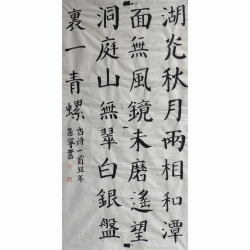 湖光秋月兩相和潭
面無風鏡未磨遙望
洞庭山無翠白銀盤
裏一青螺
古诗一首丑年
書